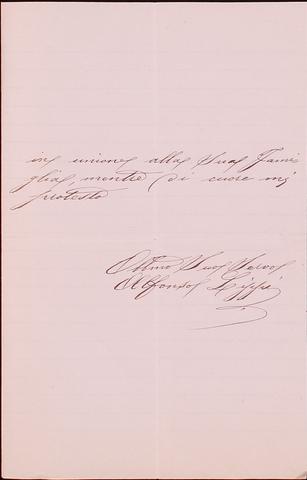 in unione alla Sua Fami
glia, mentre di cuore mi
protesto
Suo Servo
Alfonso Lippi